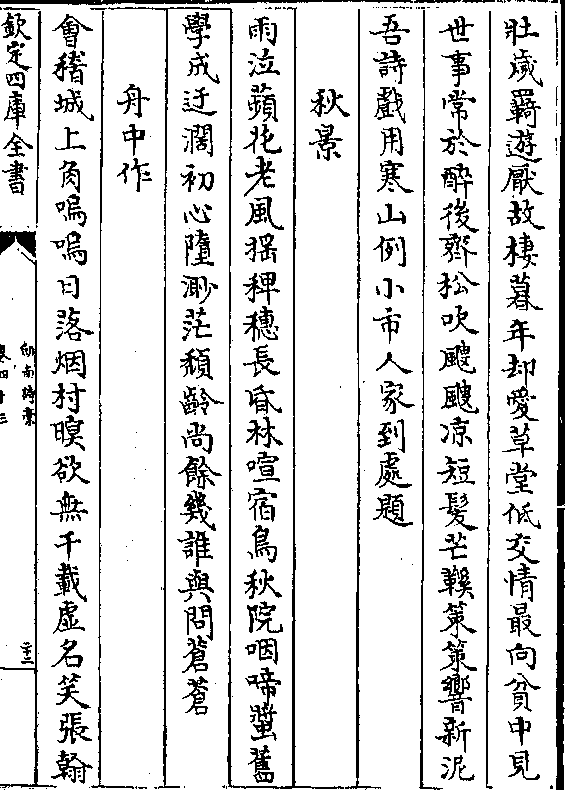 壮歳羇遊厭故棲暮年却愛草堂低交情最向貧中見
世事常於醉後齊松吹颼颼凉短髪芒鞵策策響新泥
吾詩戲用寒山例小市人家到處題
秋景
雨泣蘋花老風揺稗穗長昏林喧宿鳥秋院咽啼螿舊
學成迂濶初心墮渺茫頽齡尚餘幾誰與問蒼蒼
舟中作
㑹稽城上角嗚嗚日落烟村暝欲無千載虚名笑張翰
欽定四庫全書
劒南詩藁
卷四十三
二十二